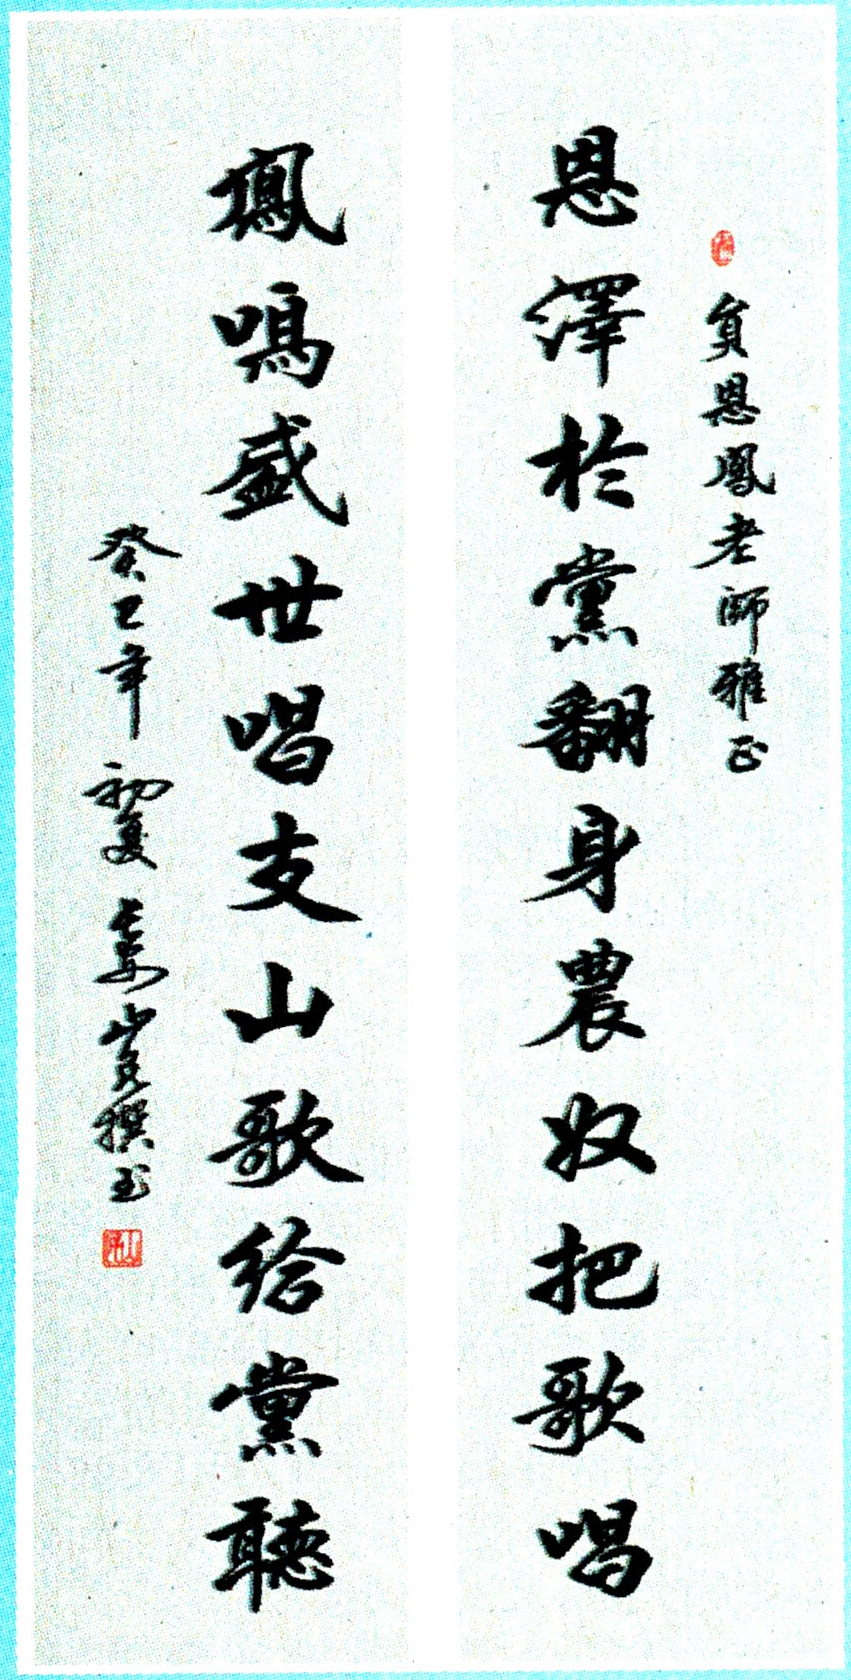 贠恩鳳老師雅正
恩澤於黨翻身農奴把歌唱
鳳鳴盛世唱支山歌給黨聽
癸巳年初夏 撰书